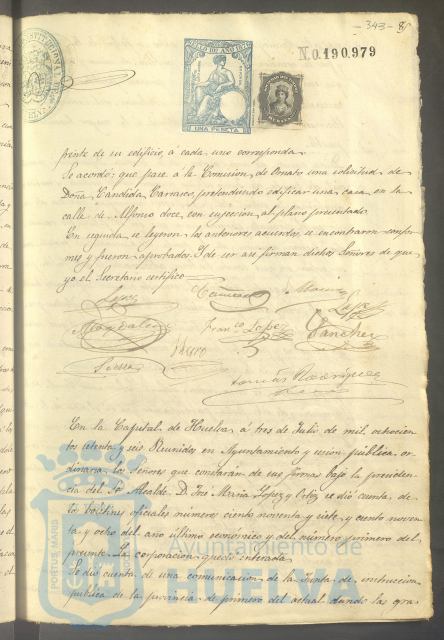 - 343 - 8
SELLO DE AÑO 1876
UNA PESETA
N.0.190,979
frente de su edificio, á cada uno corresponda.
Se acordó: que pase á la Comision de Ornato una solicitud de
Doña Candida Carrasco, pretendiendo edificar una casa en la
calle de Alfonso doce, con sujecion al plano presentado.
En seguida se leyeron los anteriores acuerdos, se encontraron confor-
mes y fueron aprobados. Y de ser asi firman dichos Señores de que
yo el Secretario certifico
Lopez
Magdalena Franco Lopez Sanchez
Tomás Rodriguez
En la Capital de Huelva á tres de Julio de mil ochocien
tos setenta y seis. Reunidos en Ayuntamiento y sesion pública or
dinaria los Señores que constarán de sus firmas bajo la presiden
cia del Sr. Alcalde D. José Maria Lopez y Ortiz, se dió cuenta de
los boletines oficiales números ciento noventa y siete y ciento noven
ta y ocho del año último economico y del número primero del
presente. La corporacion quedó enterada.
Se dió cuenta de una comunicacion de la Junta de instruccion
publica de la provincia de primero del actual dando las gra
PORTUS MARIS
Ayuntamiento de
HUELVA